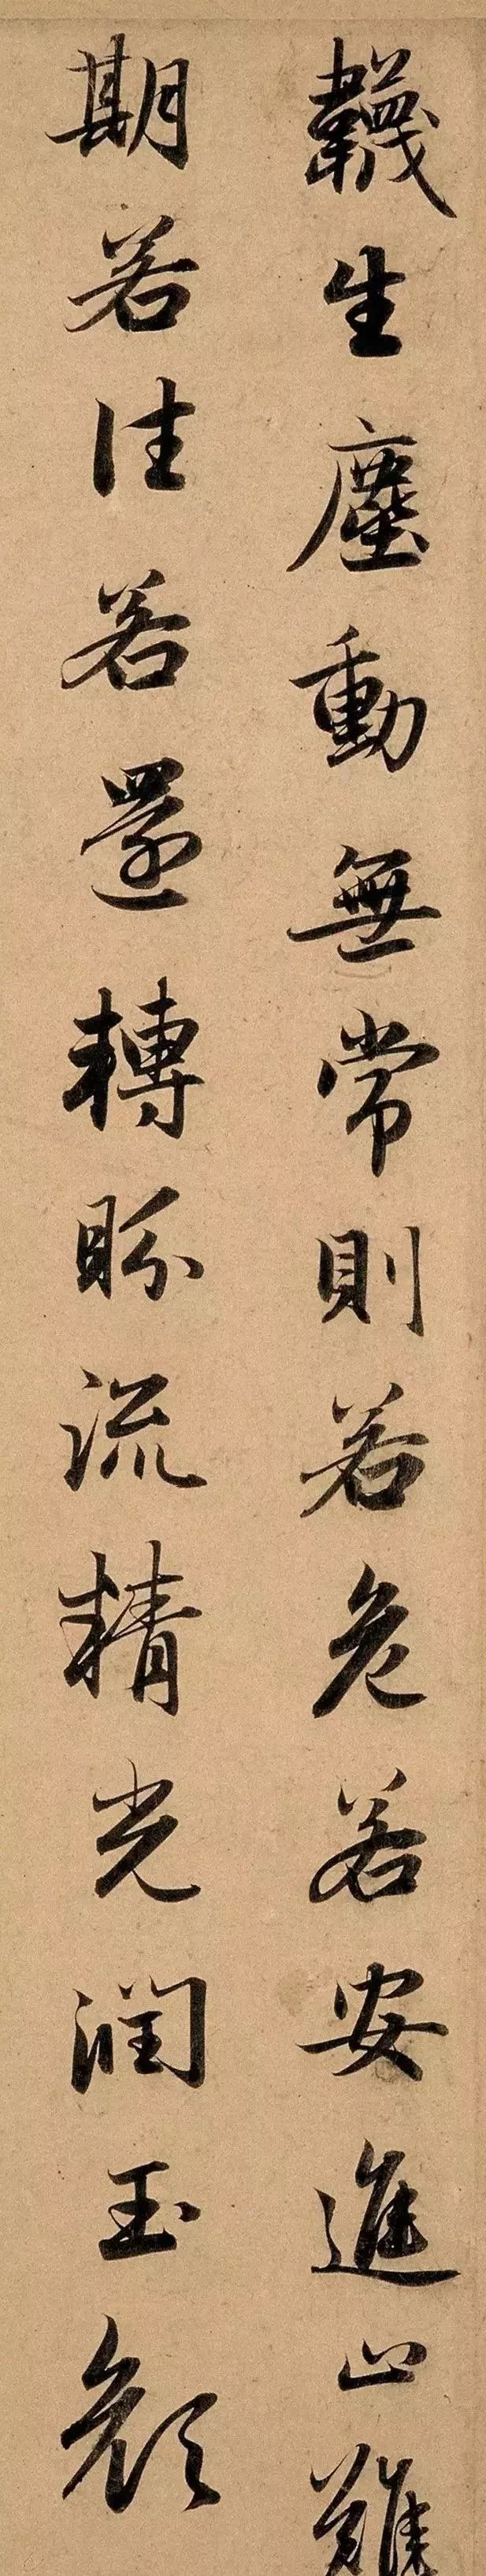 韈生塵動無常則若危若安進止難
期若往若還轉眄流精光潤玉顏